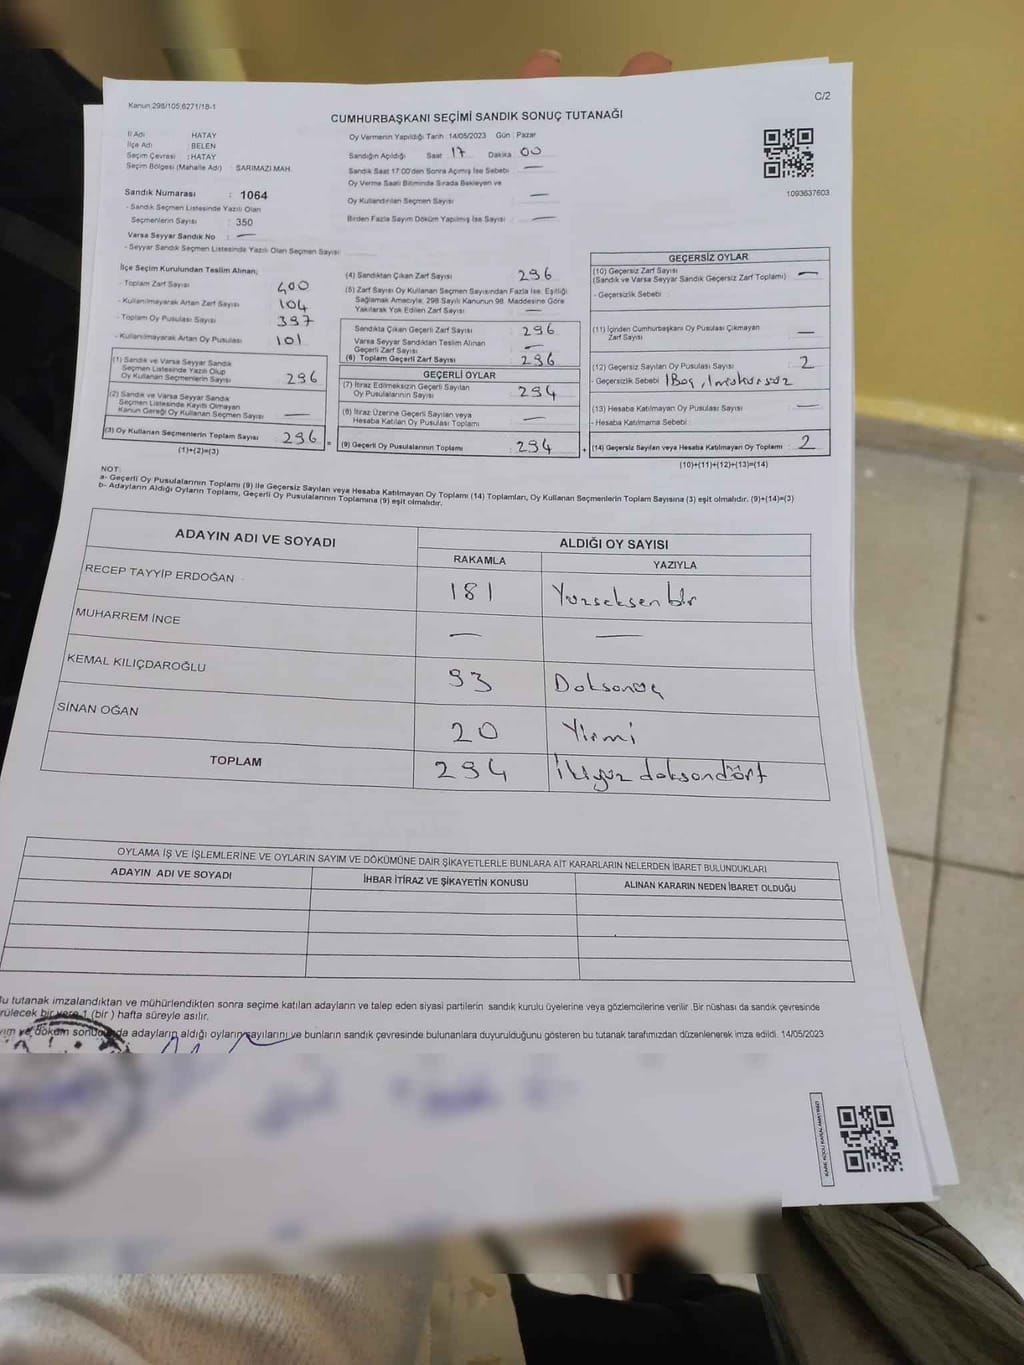 Kanun:298/105,6271/18-1
C/2
CUMHURBAŞKANI SEÇİMİ SANDIK SONUÇ TUTANAĞI
İl Adı HATAY
İlçe Adı BELEN
Seçim Çevresi :HATAY
Seçim Bölgesi (Mahalle Adı) : SARIMAZI MAH.
Sandık Numarası : 1064
- Sandık Seçmen Listesinde Yazılı Olan
Seçmenlerin Sayısı : 350
Varsa Seyyar Sandık No : —
- Seyyar Sandık Seçmen Listesinde Yazılı Olan Seçmen Sayısı :
Oy Vermenin Yapıldığı Tarih 14/05/2023 Gün : Pazar
Sandığın Açıldığı Saat 17 Dakika 00
Sandık Saat 17:00'den Sonra Açılmış İse Sebebi —
Oy Verme Saati Bitiminde Sırada Bekleyen ve
Oy Kullandırılan Seçmen Sayısı —
Birden Fazla Sayım Döküm Yapılmış İse Sayısı —
1093637603
İlçe Seçim Kurulundan Teslim Alınan;
- Toplam Zarf Sayısı : 400
- Kullanılmayarak Artan Zarf Sayısı : 104
- Toplam Oy Pusulası Sayısı : 397
- Kullanılmayarak Artan Oy Pusulası : 101
(1) Sandık ve Varsa Seyyar Sandık
Seçmen Listesinde Yazılı Olup
Oy Kullanan Seçmenlerin Sayısı : 296
(2) Sandık ve Varsa Seyyar Sandık
Seçmen Listesinde Kayıtlı Olmayan
Kanun Gereği Oy Kullanan Seçmen Sayısı : —
(3) Oy Kullanan Seçmenlerin Toplam Sayısı : 296
(1)+(2)=(3)
(4) Sandıktan Çıkan Zarf Sayısı : 296
(5) Zarf Sayısı Oy Kullanan Seçmen Sayısından Fazla İse, Eşitliği
Sağlamak Amacıyla, 298 Sayılı Kanunun 98. Maddesine Göre
Yakılarak Yok Edilen Zarf Sayısı : —
Sandıkta Çıkan Geçerli Zarf Sayısı : 296
Varsa Seyyar Sandıktan Teslim Alınan
Geçerli Zarf Sayısı : —
(6) Toplam Geçerli Zarf Sayısı : 296
GEÇERLİ OYLAR
(7) İtiraz Edilmeksizin Geçerli Sayılan
Oy Pusulalarının Sayısı : 294
(8) İtiraz Üzerine Geçerli Sayılan veya
Hesaba Katılan Oy Pusulası Toplamı : —
(9) Geçerli Oy Pusulalarının Toplamı : 294
GEÇERSİZ OYLAR
(10) Geçersiz Zarf Sayısı
(Sandık ve Varsa Seyyar Sandık Geçersiz Zarf Toplamı) : —
- Geçersizlik Sebebi :
(11) İçinden Cumhurbaşkanı Oy Pusulası Çıkmayan
Zarf Sayısı : —
(12) Geçersiz Sayılan Oy Pusulası Sayısı : 2
- Geçersizlik Sebebi 1Boş,
(13) Hesaba Katılmayan Oy Pusulası Sayısı : —
- Hesaba Katılmama Sebebi :
(14) Geçersiz Sayılan veya Hesaba Katılmayan Oy Toplamı : 2
(10)+(11)+(12)+(13)=(14)
NOT:
a- Geçerli Oy Pusulalarının Toplamı (9) ile Geçersiz Sayılan veya Hesaba Katılmayan Oy Toplamı (14) Toplamları, Oy Kullanan Seçmenlerin Toplam Sayısına (3) eşit olmalıdır. (9)+(14)=(3)
b- Adayların Aldığı Oyların Toplamı, Geçerli Oy Pusulalarının Toplamına (9) eşit olmalıdır.
ADAYIN ADI VE SOYADI ALDIĞI OY SAYISI
RAKAMLA YAZIYLA
RECEP TAYYİP ERDOĞAN 181 Yüzseksenbir
MUHARREM İNCE — —
KEMAL KILIÇDAROĞLU 93 Doksanüç
SİNAN OĞAN 20 Yirmi
TOPLAM 294 İkiyüz doksandört
OYLAMA İŞ VE İŞLEMLERİNE VE OYLARIN SAYIM VE DÖKÜMÜNE DAİR ŞİKAYETLERLE BUNLARA AİT KARARLARIN NELERDEN İBARET BULUNDUKLARI
ADAYIN ADI VE SOYADI İHBAR İTİRAZ VE ŞİKAYETİN KONUSU ALINAN KARARIN NEDEN İBARET OLDUĞU
Bu tutanak imzalandıktan ve mühürlendikten sonra seçime katılan adayların ve talep eden siyasi partilerin sandık kurulu üyelerine veya gözlemcilerine verilir .Bir nüshası da sandık çevresinde
rülecek bir yere 1 (bir ) hafta süreyle asılır.
yım ve döküm sonucunda adayların aldığı oyların sayılarını ve bunların sandık çevresinde bulunanlara duyurulduğunu gösteren bu tutanak tarafımızdan düzenlenerek imza edildi. 14/05/2023